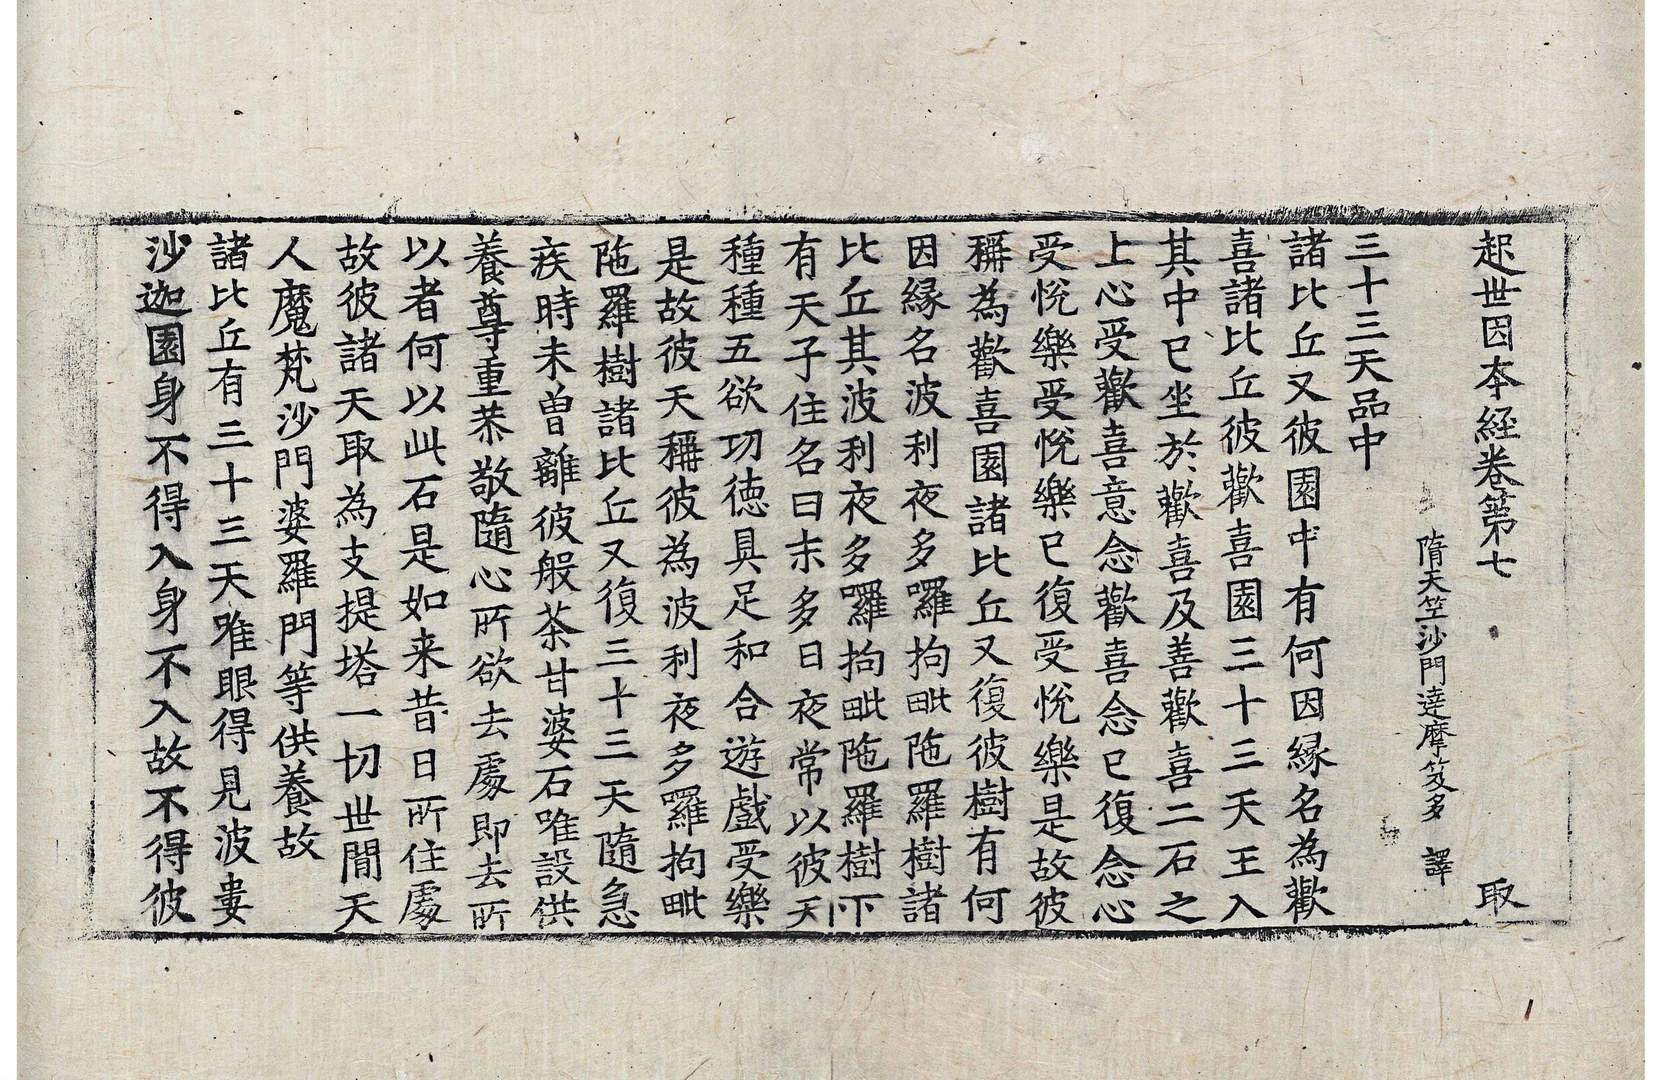 起世因本經卷第七 取
隋天竺沙門達摩笈多 譯
三十三天品中
諸比丘又彼園中有何因縁名為歡
喜諸比丘彼歡喜園三十三天王入
其中已坐於歡喜及善歡喜二石之
上心受歡喜意念歡喜念已復念心
受悅樂受悅樂已復受悅樂是故彼
稱為歡喜園諸比丘又復彼樹有何
因縁名波利夜多囉拘毗陁羅樹諸
比丘其波利夜多囉拘毗陁羅樹下
有天子住名曰末多日夜常以彼天
種種五欲功徳具足和合遊戲受樂
是故彼天稱彼為波利夜多囉拘毗
陁羅樹諸比丘又復三十三天隨急
疾時未曾離彼般荼甘婆石唯設供
養尊重恭敬隨心所欲去處即去所
以者何以此石是如来昔日所住處
故彼諸天取為支提塔一切世間天
人魔梵沙門婆羅門等供養故
諸比丘有三十三天唯眼得見波婁
沙迦園身不得入身不入故不得彼